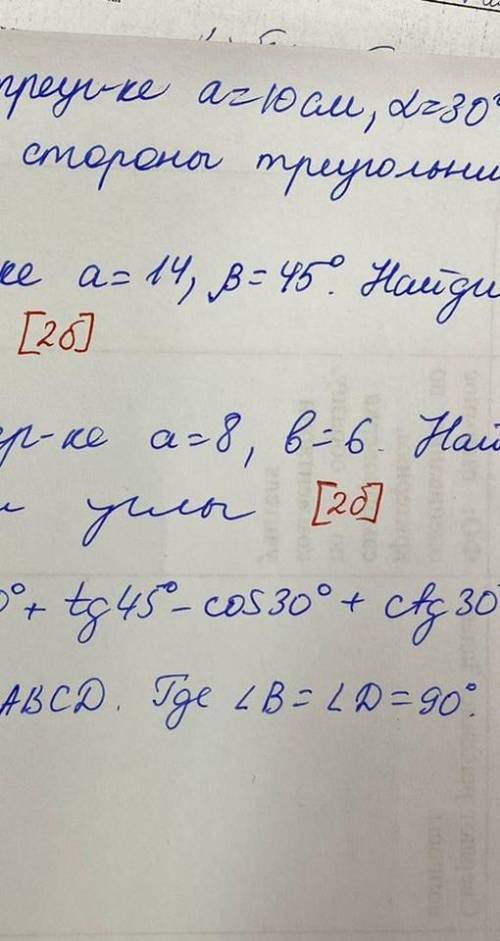 треуг-ке a=10см, α=30°
стороны треугольни
ке a=14, β=45°. Найди
[2б]
ер-ке a=8, b=6. Най
и углы [2б]
0°+ tg45°- cos30°+ ctg30
ABCD. Где ∠B=∠D=90°.